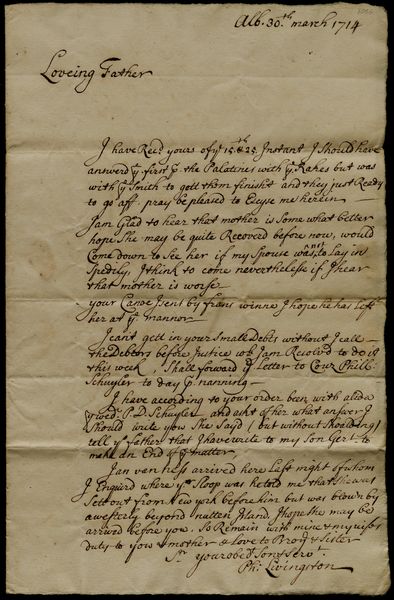 Alb. 30.th march 1714
Loveing Father
I have Rec.d yours of y.e 15.th & 25 Instant I Should have
answerd y.e first p.r the Palatines with y.e Rakes but was
with y.e Smith to gett them finisht and they just Ready
to go aff. pray be pleased to Excuse me herein
I am Glad to hear that mother is Some what better
hope She may be quite Recoverd before now, would
Come down to See her if my Spouse was not to Lay in
Speedily, I think to come nevertheless if I hear
that mother is worse
your Canoe I sent by frans winne I hope he has left
her at y.e mannor
I cant gett in your Small Debts without I call
the Debtors before Justice wh. I am Resolv'd to do it
this week, I Shall forward y.e Letter to Cour Phill:
Schuyler to day p.r nanning
I have according to your order been with alida
wed.e P. D. Schuyler and askt of her what answer I
Should write you She Sayd (but without)
tell y.e father that I have write to my Son Gert to
make an End of y.e matter
Jan van ness arrived here Last night of whom
I Enquird where y.e Sloop was he told me that She was
Sett out from New york before him but was blown by
a westerly beyond nutten Island I hope She may be
arrived before you. So Remain with mine & my wifes
duty to you & mother & Love to Bro.r & Sister
S.r your obed.t Son & Serv.t
Ph: Livingston